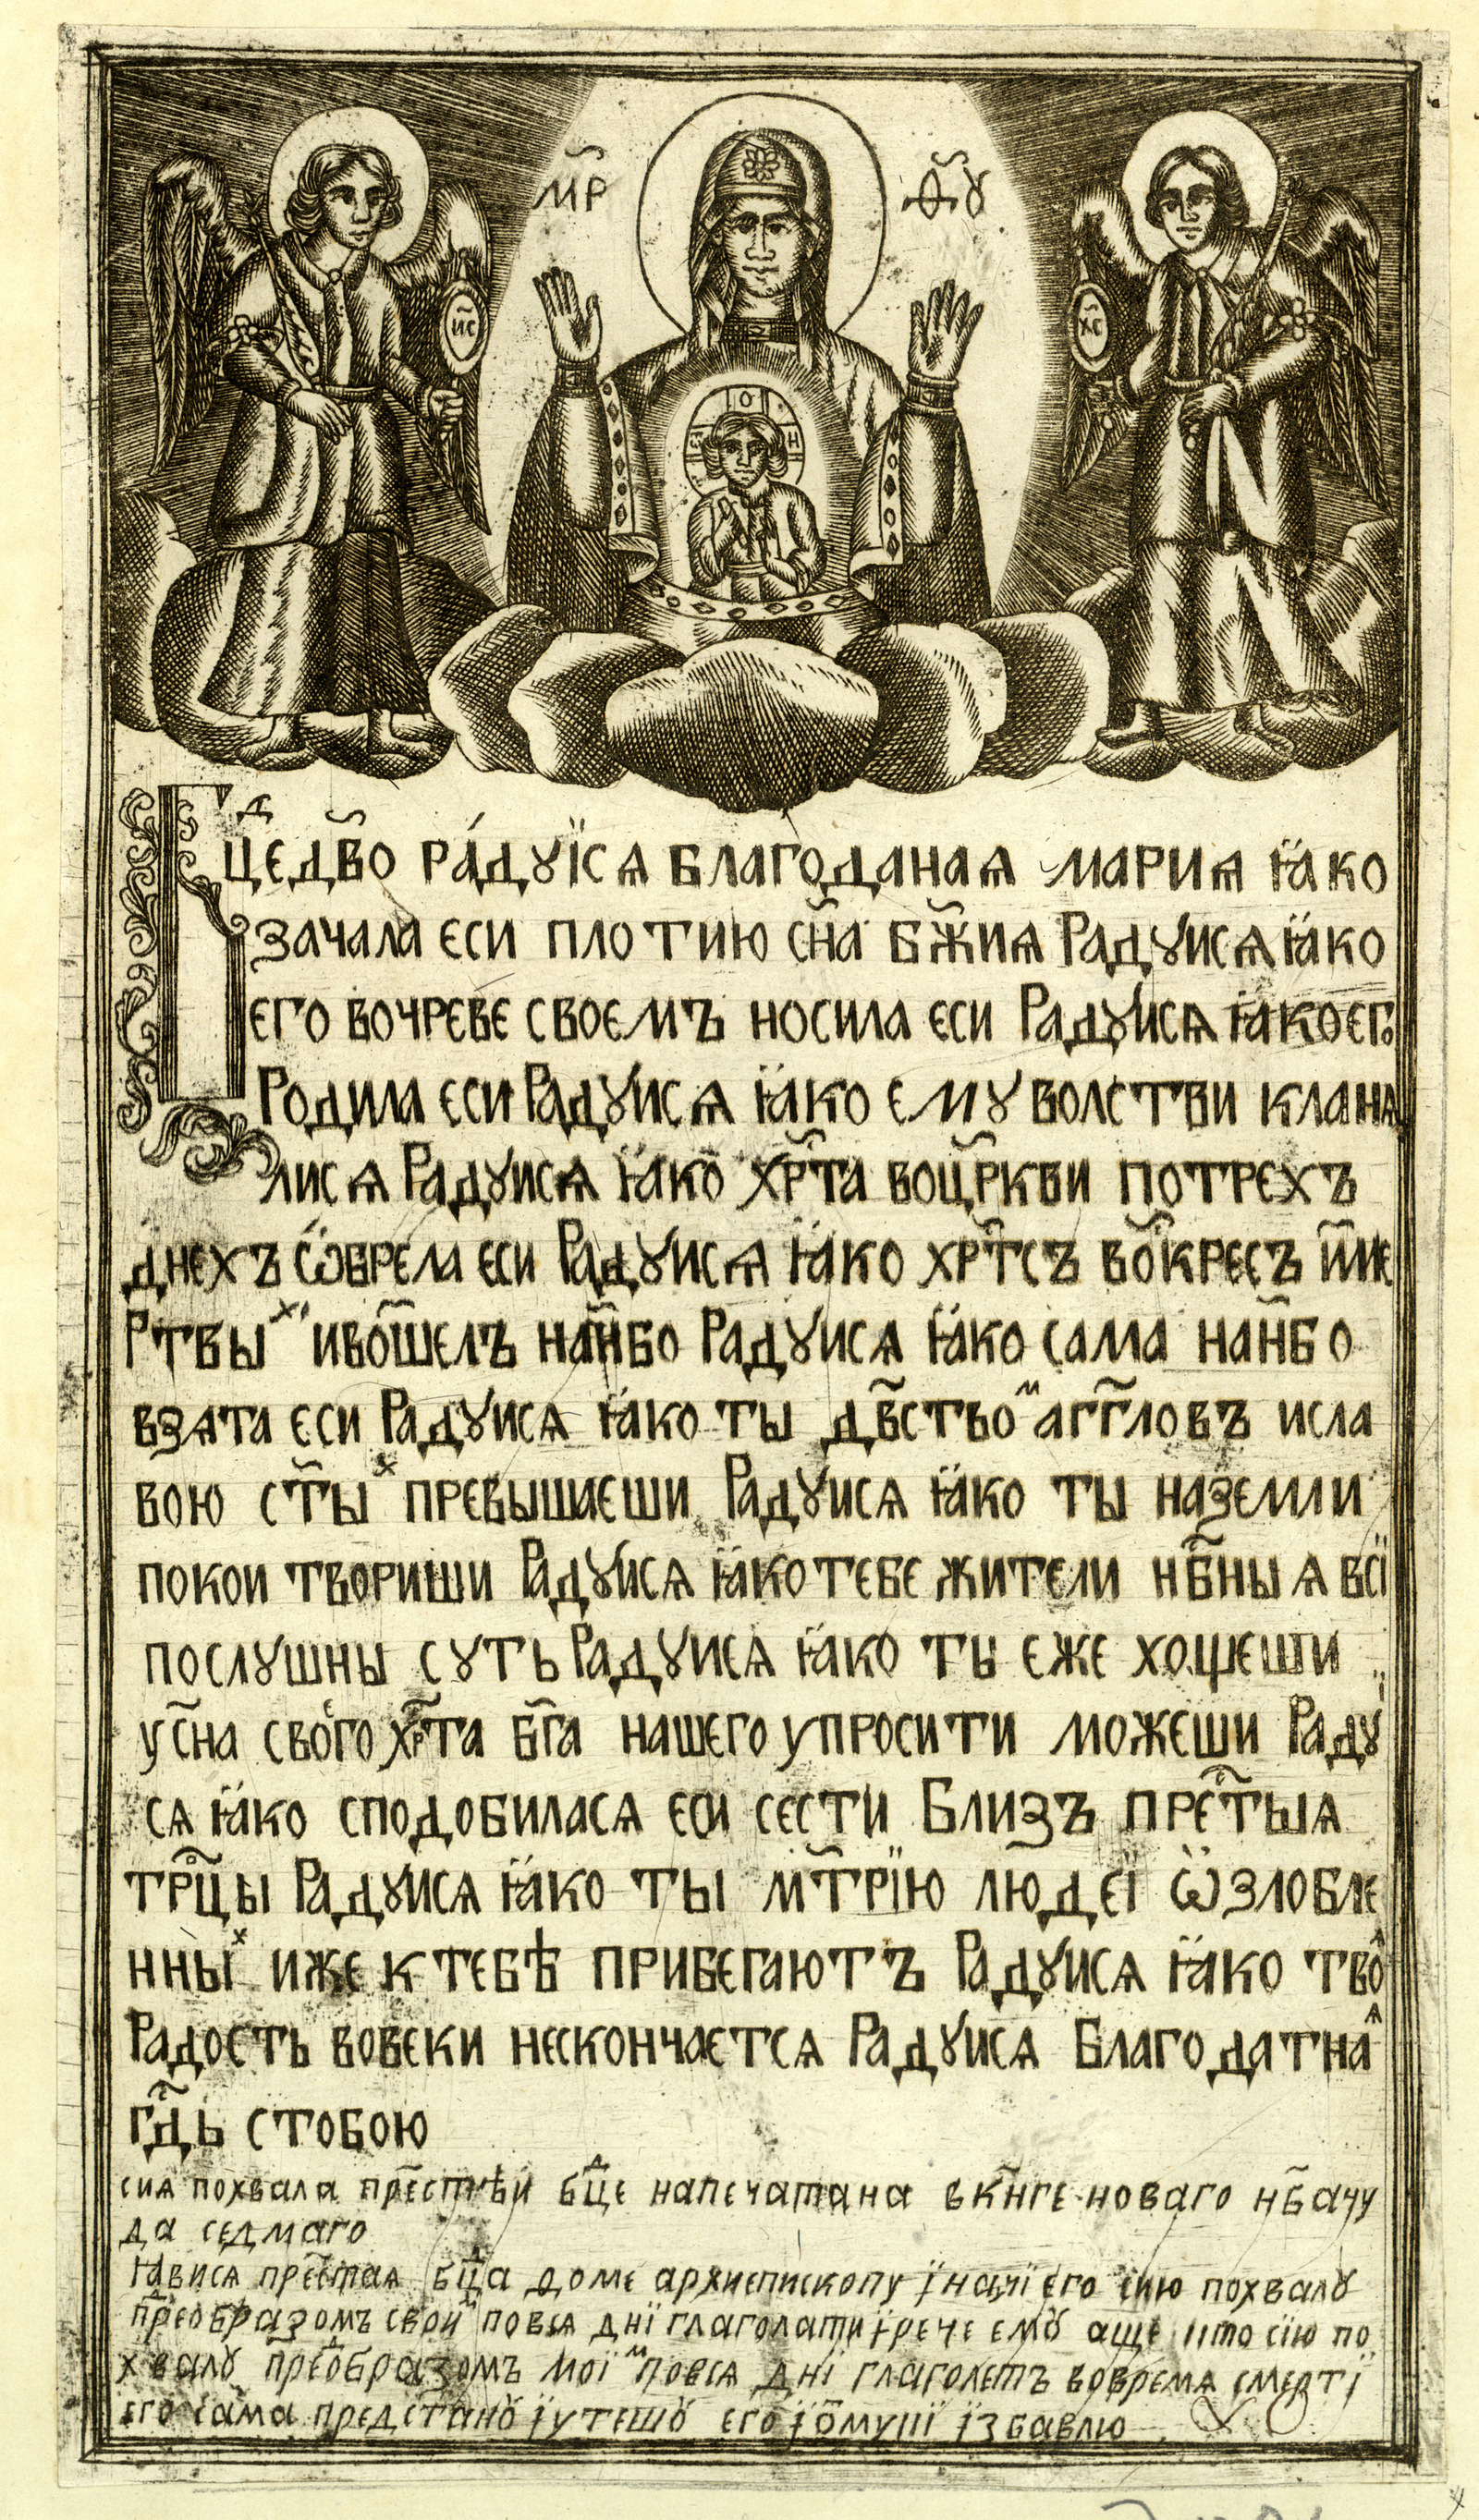 М҃Р Ѳ҃Ꙋ
И҃С
Х҃С
О Н
Бц҃е дв҃о ра́дꙋїсѧ благоданаѧ мариѧ ꙗко
зачала єси плотию сн҃а бж҃иѧ Радꙋисѧ ꙗко
єго вочреве своємъ носила єси Радꙋисѧ ꙗко єго
Родила єси Радꙋисѧ ꙗко ємꙋ волстви кланѧ
лисѧ Радꙋисѧ ꙗко хр҃та воцр҃кви потрехъ
днехъ ѡбрела єси Радꙋисѧ ꙗко хр҃тсъ во҃кресъ и҃зме
ртвыⷯ ивоше҃лъ нан҃бо Радꙋисѧ ꙗко сама нан҃бо
взѧта єси Радꙋисѧ ꙗко ты дв҃ствоⷨ агг҃ловъ исла
вою ст҃ыⷯ превышаєши Радꙋисѧ ꙗко ты наземли
покои твориши Радꙋисѧ ꙗко тебе жители нб҃ныѧ всї
послꙋшны сꙋть Радꙋисѧ ꙗко ты єже хощеши
у сн҃а своєго хр҃та бг҃а нашего упросити можеши Радꙋї
сѧ ꙗко сподобиласѧ єси сести близъ прес҃тыѧ
трⷪ҃цы Радꙋисѧ ꙗко ты мт҃рїю людєї ѡзлобле
нныⷯ иже к тебѣ прибегаютъ Радꙋисѧ ꙗко твоѧ
Радость вовеки нескончаєтсѧ Радꙋисѧ Благодатнаѧ
гдⷭ҇ь стобою
сиѧ похвала прес҃тѣи бц҃ⷣе напечатана в кн҃ге новаго нб҃а чу
да седмаго
ꙗвисѧ прес҃таѧ бц҃ⷣа доме архиепископу їначї его сию похвалꙋ
пре҃образомъ своиⷨ повсѧ днї глаголати їрече емꙋ аще кто сїю по
хвалꙋ пре҃образомъ моїⷨ повсѧ днї глаголетъ вовремѧ смертї
его сама предстанꙋ їутешꙋ его їѿмуцї їзбавлю